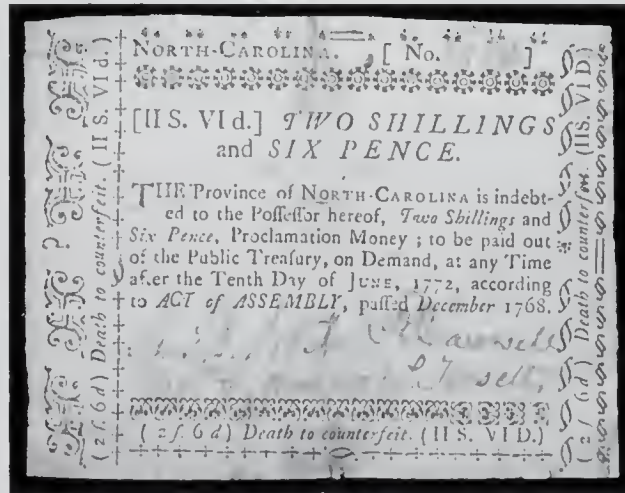 NORTH-CAROLINA. [ No. ]
[II S. VI d.] TWO SHILLINGS
and SIX PENCE.
THE Province of NORTH-CAROLINA is indebt-
ed to the Poſſeſſor hereof, Two Shillings and
Six Pence, Proclamation Money ; to be paid out
of the Public Treaſury, on Demand, at any Time
after the Tenth Day of JUNE, 1772, according
to ACT of ASSEMBLY, paſſed December 1768.
(2 ſ. 6 d) Death to counterfeit. (II S. VI D.)
(2 ſ. 6 d) Death to counterfeit. (II S. VI d.)
(2 ſ. 6 d) Death to counterfeit. (II S. VI D.)